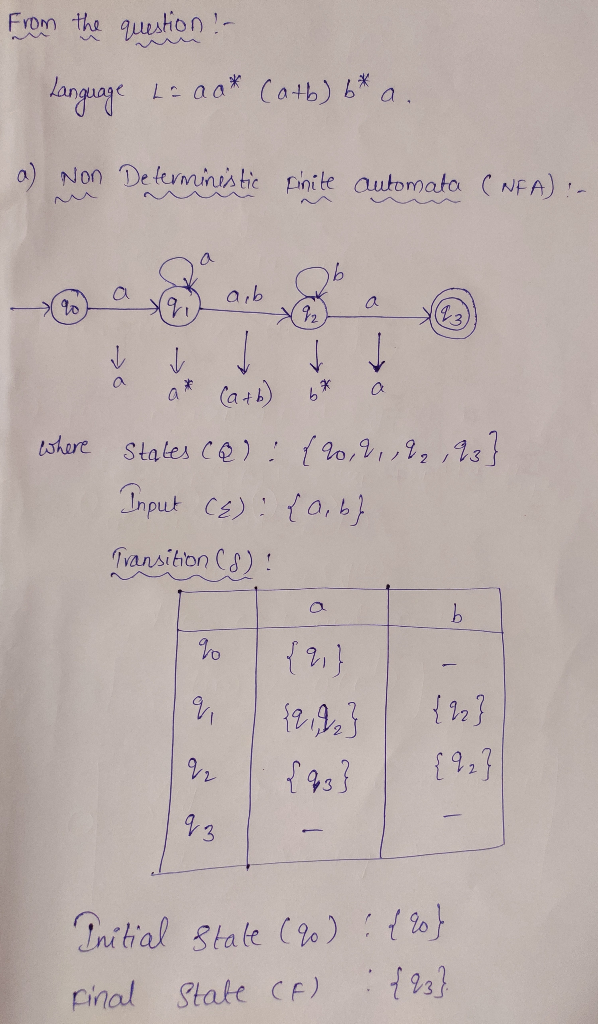 From the question :-
Language L = aa* (a+b) b* a.
a) Non Deterministic Finite automata (NFA) :-
a b
q0 a q1 a,b q2 a q3
↓ ↓ ↓ ↓ ↓
a a* (a+b) b* a
where States (Q) : {q0, q1, q2, q3}
Input (Σ) : {a, b}
Transition (δ) :
a b
q0 {q1} –
q1 {q1,q2} {q2}
q2 {q3} {q2}
q3 – –
Initial State (q0) : {q0}
Final State (F) : {q3}